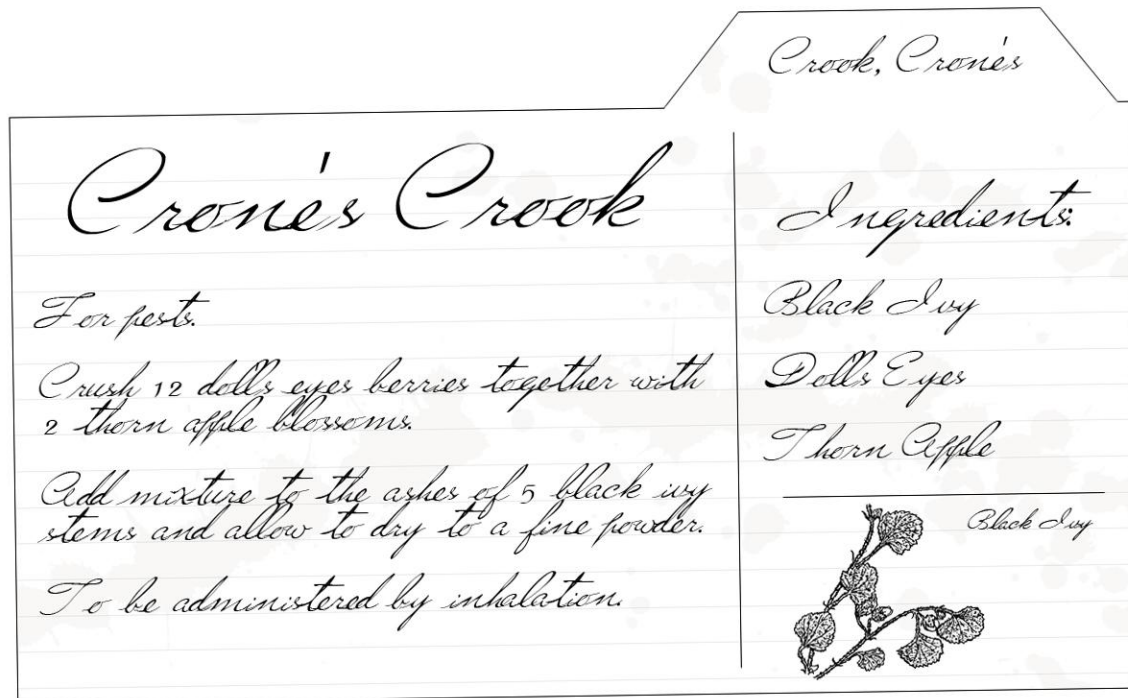 Crook, Crone's
Crone's Crook
For pests.
Crush 12 dolls eyes berries together with
2 thorn apple blossoms.
Add mixture to the ashes of 5 black ivy
stems and allow to dry to a fine powder.
To be administered by inhalation.
Ingredients:
Black Ivy
Dolls Eyes
Thorn Apple
Black Ivy